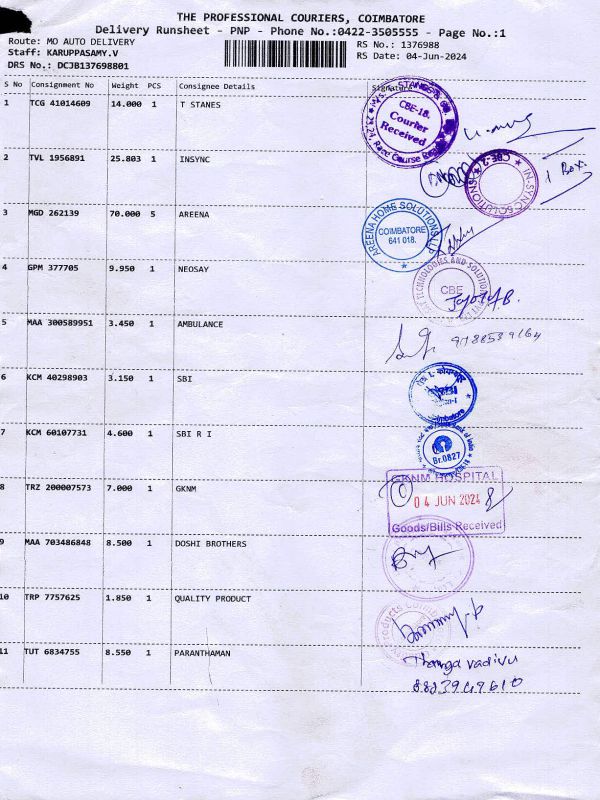 THE PROFESSIONAL COURIERS, COIMBATORE
Delivery Runsheet - PNP - Phone No.:0422-3505555 - Page No.:1
Route: MO AUTO DELIVERY RS No.: 1376988
Staff: KARUPPASAMY.V RS Date: 04-Jun-2024
DRS No.: DCJB137698801
S No Consignment No Weight PCS Consignee Details Signature
1 TCG 41014609 14.000 1 T STANES
CBE-18.
Courier
Received
Race Course
2 TVL 1956891 25.803 1 INSYNC
IN-SYNC SOLUTION
CBE-2
1 Box
3 MGD 262139 70.000 5 AREENA
AREENA HOME SOLUTIONS LLP
COIMBATORE
641 018.
4 GPM 377705 9.950 1 NEOSAY
TECHNOLOGIES AND SOLUTIONS
CBE
5 MAA 300589951 3.450 1 AMBULANCE
6 KCM 40298903 3.150 1 SBI
7 KCM 60107731 4.600 1 SBI R I
Br.0827
8 TRZ 200007573 7.000 1 GKNM
GKNM HOSPITAL
04 JUN 2024
Goods/Bills Received
9 MAA 703486848 8.500 1 DOSHI BROTHERS
10 TRP 7757625 1.850 1 QUALITY PRODUCT
11 TUT 6834755 8.550 1 PARANTHAMAN
Thanga vadivu